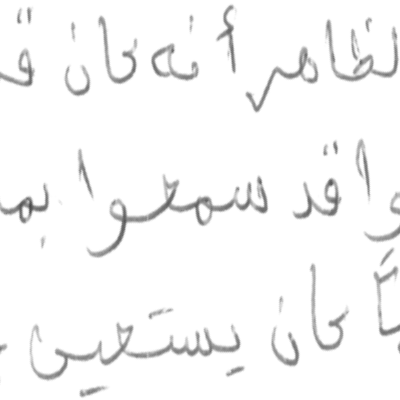 لظاهر أنه كان ق
وا قد سمعوا بم
ًا كان يستعين